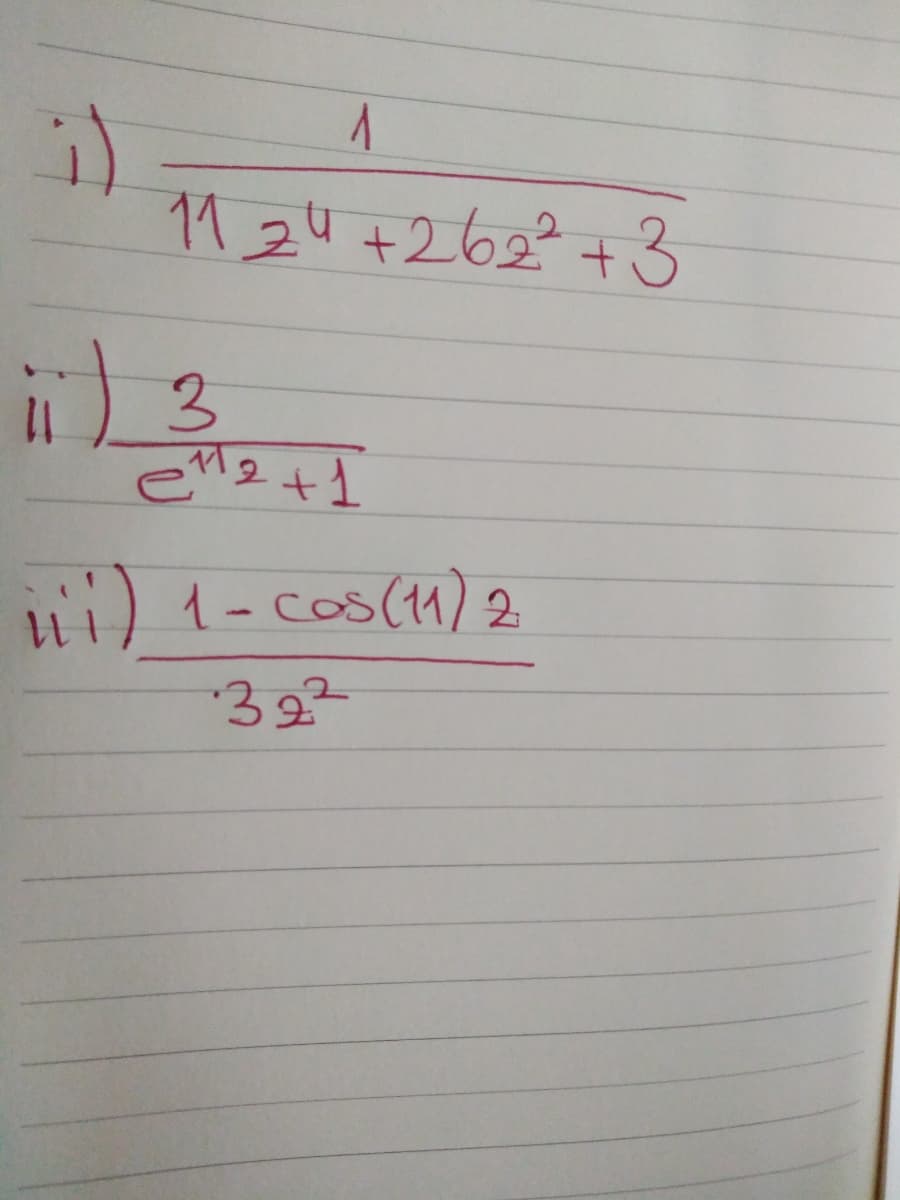 i) 1
11z⁴ + 26z² + 3
ii) 3
e¹¹ᶻ + 1
iii) 1 - cos(11)z
3z²